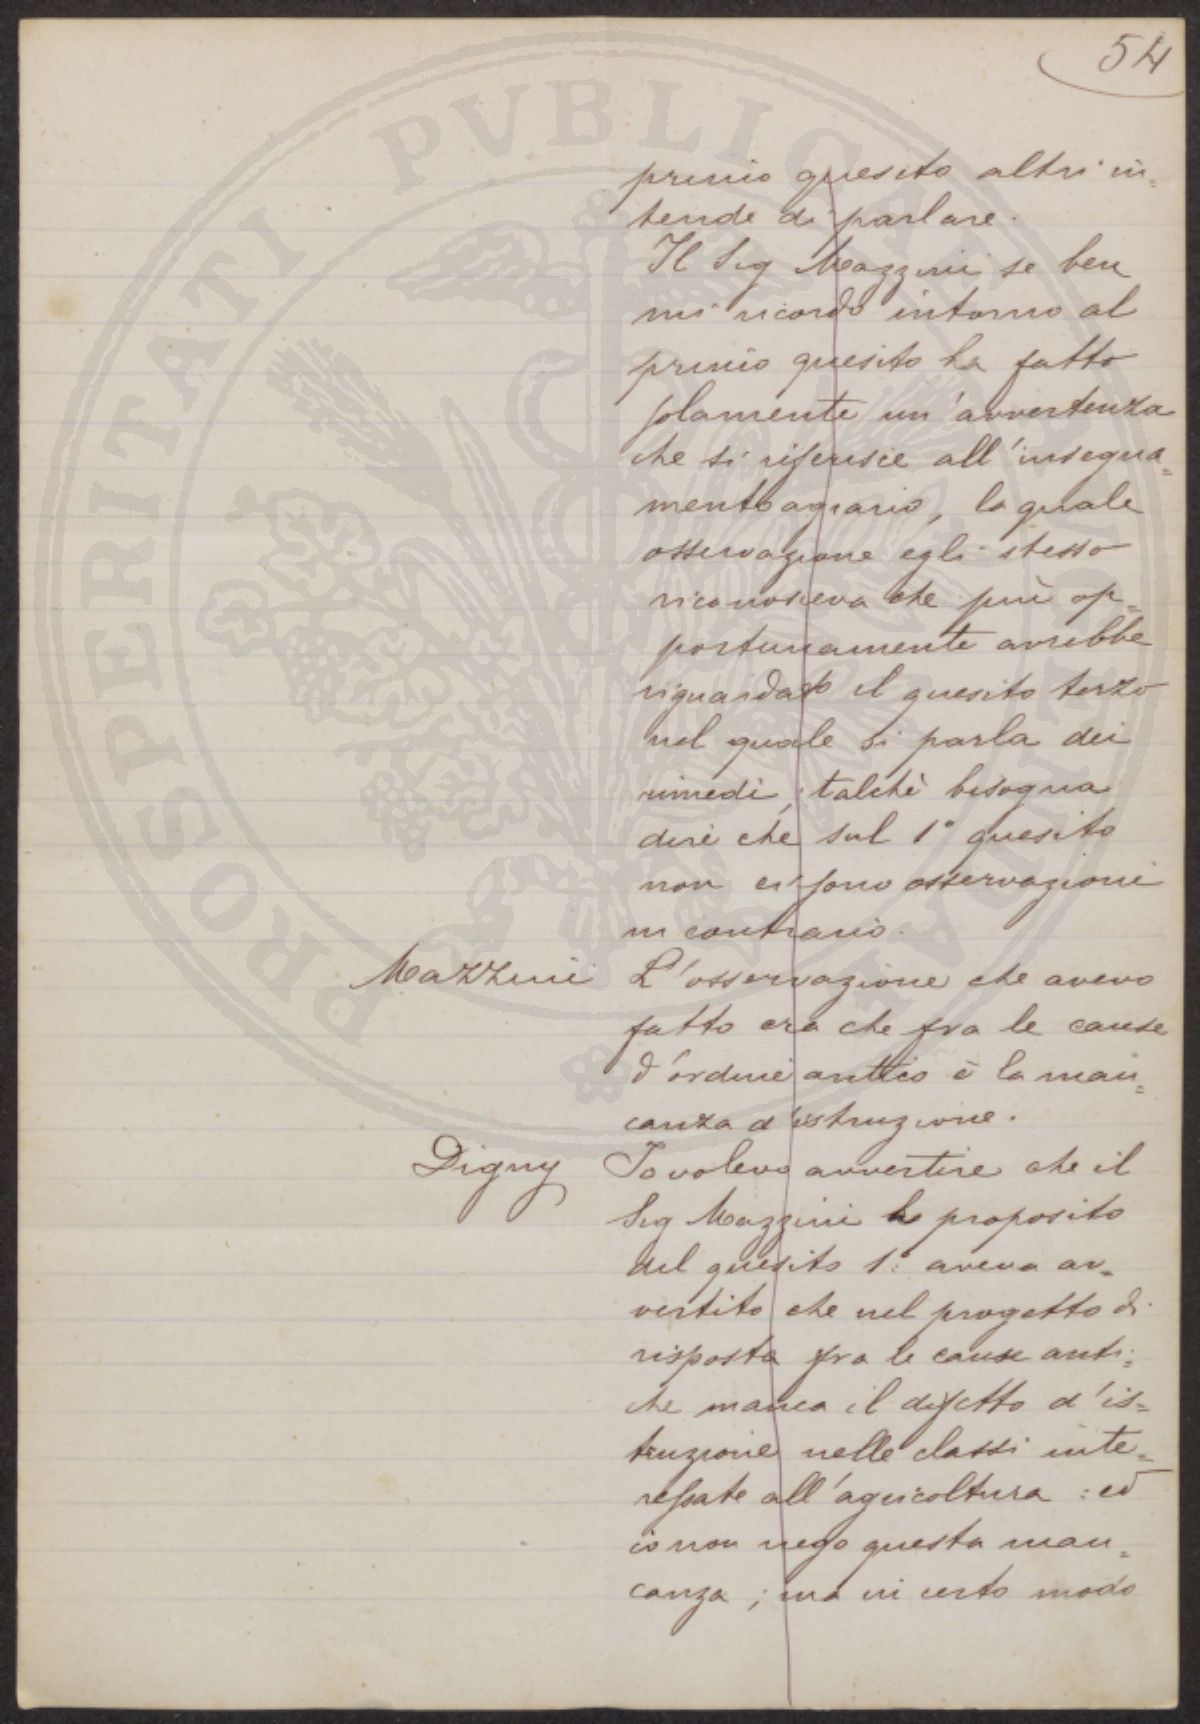 54
primo quesito altri in=
tende di parlare.
Il Sig Mazzini se ben
mi ricordo intorno al
primo quesito ha fatto
solamente un'avvertenza
che si riferisce all'insegna=
mento agrario, la quale
osservazione egli stesso
riconosceva che più op=
portunamente avrebbe
riguardato il quesito terzo
nel quale si parla dei
rimedi, talchè bisogna
dire che sul 1° quesito
non ci sono osservazioni
in contrario.
Mazzini L'osservazione che avevo
fatto era che fra le cause
d'ordine antico è la man=
canza d'istruzione.
Digny Io volevo avvertire che il
Sig Mazzini a proposito
del quesito 1° aveva av=
vertito che nel progetto di
risposta fra le cause anti=
che manca il difetto d'is=
truzione nelle classi inte=
ressate all'agricoltura: ed
io non nego questa man=
canza; ma in certo modo
PROSPERITATI PVBLICAE